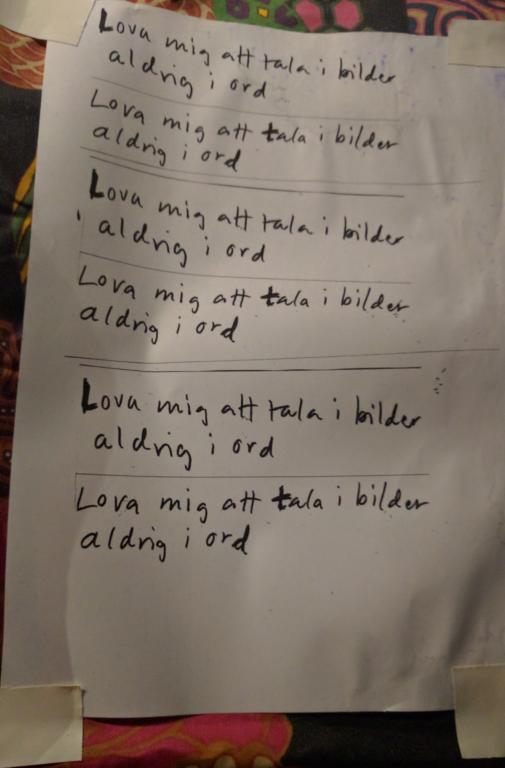 Lova mig att tala i bilder
aldrig i ord
Lova mig att tala i bilder
aldrig i ord
Lova mig att tala i bilder
aldrig i ord
Lova mig att tala i bilder
aldrig i ord
Lova mig att tala i bilder
aldrig i ord
Lova mig att tala i bilder
aldrig i ord